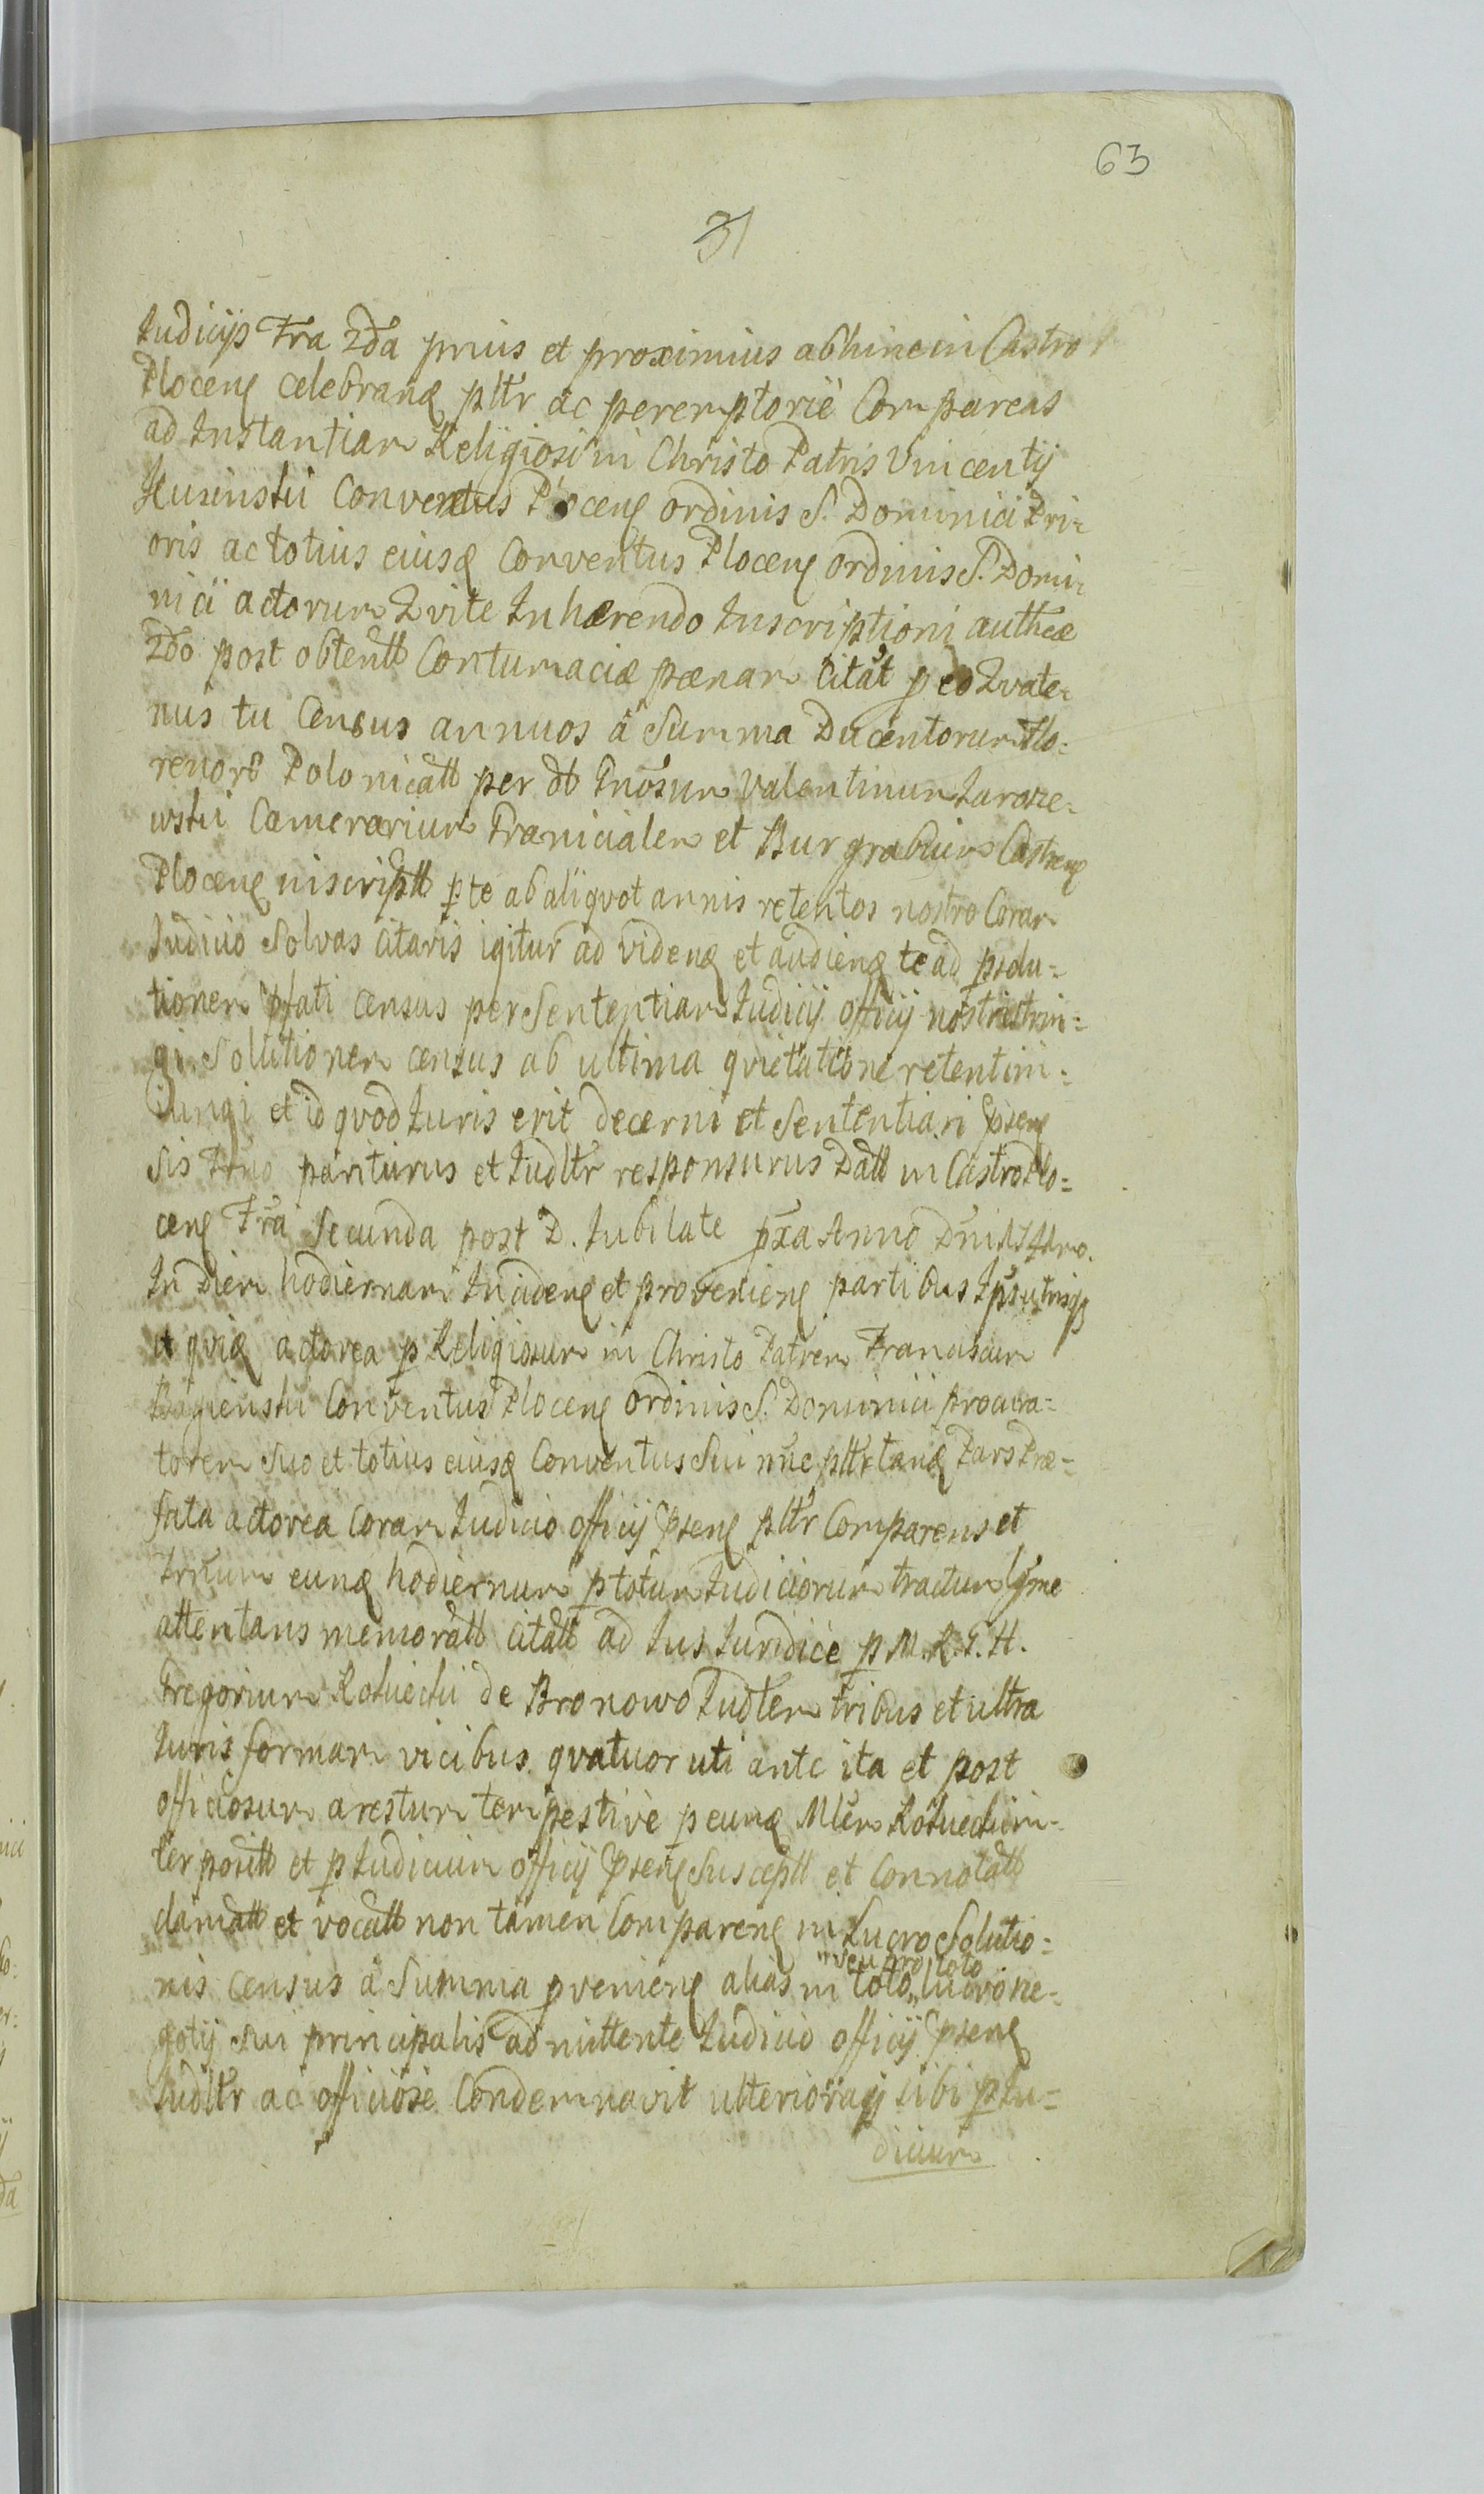 63
31
Judicijs Fra 2da prius et proximius abhinc in Castro
Plocen celebrand pltr ac peremptorie Compareas
ad Instantiam Religiosi in Christo Patris Vincentij
Conventus Plocen ordinis S. Dominici Pri-
oris ac totius eiusd Conventus Plocen ordinis S. Domi-
nici actorum Qui te Inhærendo Inscriptioni authcæ
2do post obtent Contumaciæ pænam citat p eo Quate-
nus tu Census annuos a Summa Ducentorum Flo-
renor Polonicall per olb Gnosum Valentinum Jaroze-
wski Camerarium Granicialem et Burgrabium Castren
Plocen inscriptt p te ab aliquot annis retentos nostro Coram
Judicio Solvas citaris igitur ad vidend et audiend te ad psolu-
tionem pfati census per Sententiam Judicij officij nostri strin-
gi Solutionem census ab ultima quietatione retenti in-
iungi et id quod Juris erit decerni et Sententiari psens
sis Trno pariturus et Judltr responsurus Datt in Castro Plo-
cen Fra Secunda post D. Jubilate pxa Anno Dni
In diem hodiernam Inciden et provenien partibus Ipsis utrisq
et quid actorea p Religiosum in Christo Patrem Franciscum
Conventus Plocen ordinis S. Dominici procura-
torem suo et totius eiusd Conventus Sui nne pltr tand Pars Præ-
fata actorea Coram Judicio officij psen pltr Comparens et
Trnum eund hodiernum p totum Judiciorum tractum lgme
attentans memoratt citatt ad Jus Juridice p M. R. G. H.
Gregorium de Bronowo Judlem tribus et ultra
Juris formam vicibus quatuor uti ante ita et post
officiosum arestum tempestive p eund Mlem in-
terpositt et p Judicium officij psen Susceptt et Connotatt
clamatt et vocatt non tamen Comparen in Lucro Solutio-
nis census a Summa pvenien alias in toto "seu pro toto" lucro ne-
gotij sui principalis admittente Judicio officij psen
Judltr ac officiose Condemnavit ulterioraq sibi p Ju-
dicium